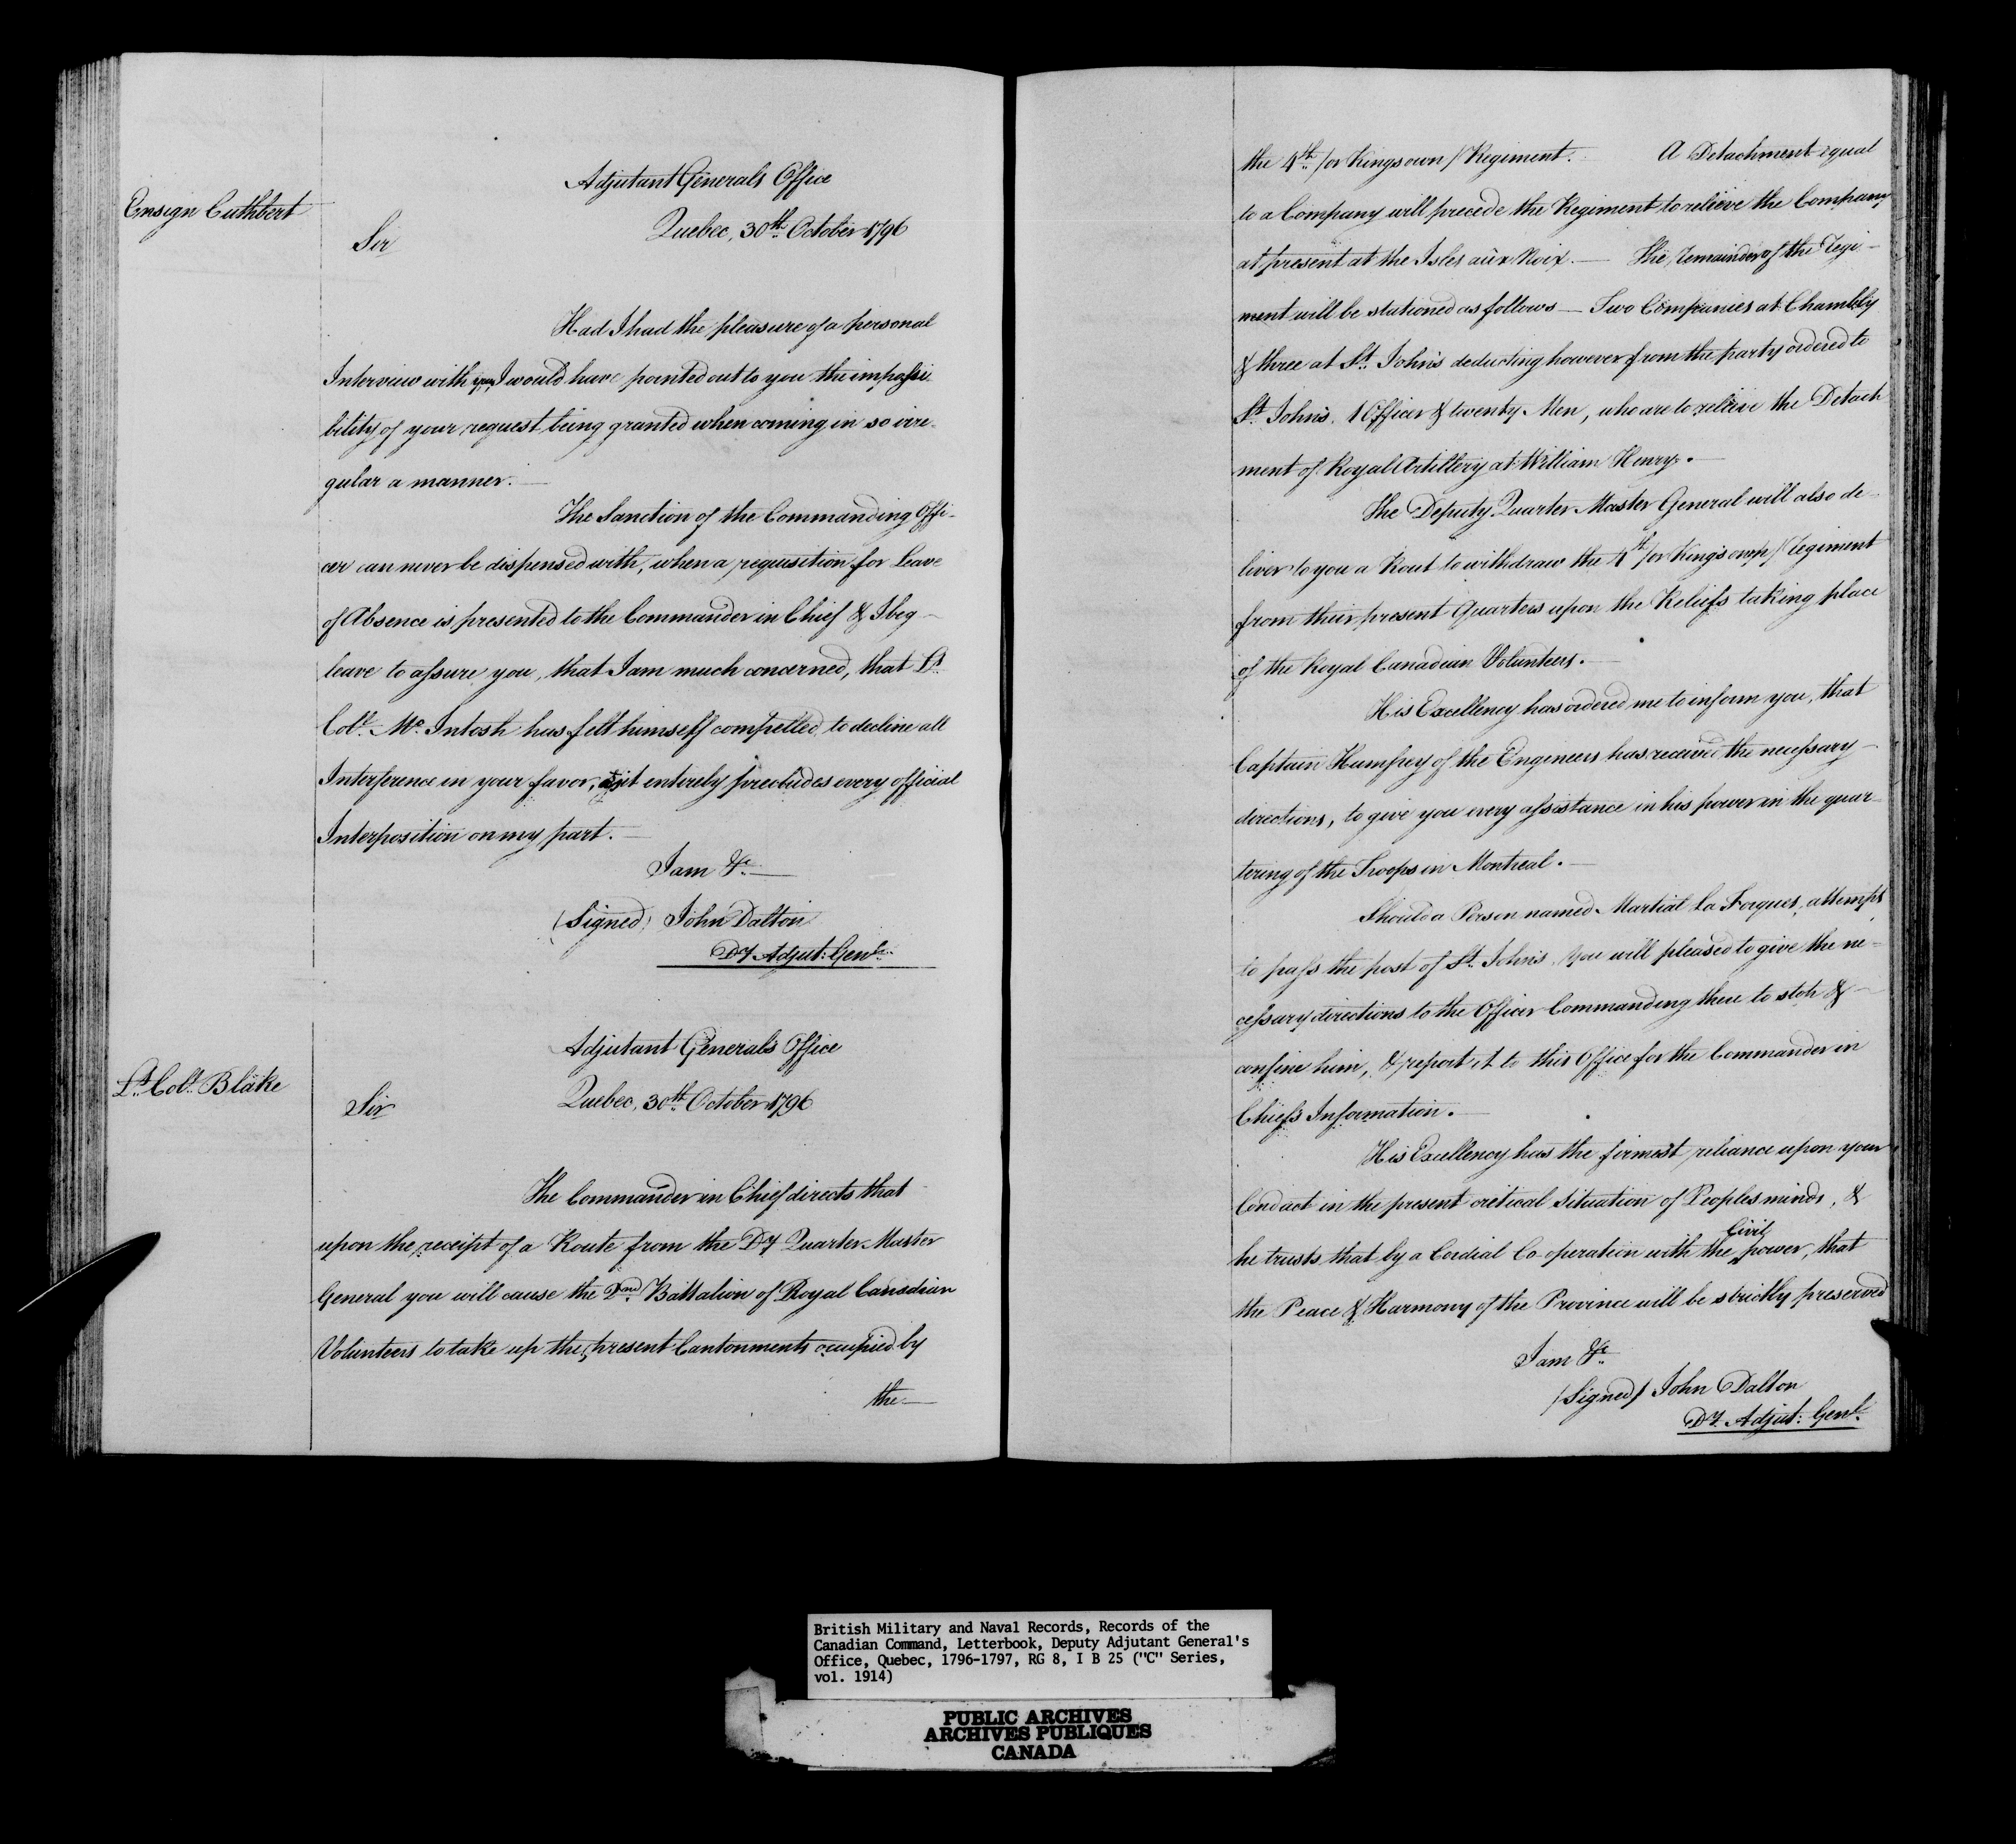 Ensign Cuthbert
Adjutant Generals Office
Quebec, 30th October 1796
Sir
Had I had the pleasure of a personal
Interview with you, I would have pointed out to you the impossi-
bility of your request being granted when coming in so irre-
gular a manner.
The Sanction of the Commanding Offi-
cer can never be dispensed with, when a requisition for Leave
of Absence is presented to the Commander in Chief & I beg
leave to assure you, that I am much concerned, that Lt
Coll. Mc. Intosh has felt himself compelled to decline all
Interference in your favor, as it entirely precludes every official
Interposition on my part.
I am &c.
(Signed) John Dalton
Dy Adjut: Genl.
Lt. Coll. Blake
Adjutant General's Office
Quebec, 30th October 1796
Sir
The Commander in Chief directs that
upon the receipt of a Route from the Dy Quarter Master
General you will cause the 2nd Battalion of Royal Canadian
Volunteers to take up the present Cantonments occupied by
the
the 4th. /or Kings own/ Regiment. A Detachment equal
to a Company will precede the Regiment to relieve the Company
at present at the Isles aux Noix. — The Remainder of the Regi-
ment will be stationed as follows — Two Companies at Chambly
& three at St. John's deducting however from the party ordered to
St. John's, 1 Officer & twenty Men, who are to relieve the Detach
ment of Royal Artillery at William Henry.
The Deputy Quarter Master General will also de-
liver to you a Rout to withdraw the 4th /or King's own/ Regiment
from their present Quarters upon the Reliefs taking place
of the Royal Canadian Volunteers.
His Excellency has ordered me to inform you, that
Captain Humpey of the Engeneers has received the necessary
directions, to give you every assistance in his power in the quar-
tering of the Troops in Montreal.
Should a Person named Martial La Forques, attempt
to pass the post of St. John's you will pleased to give the ne-
cessary directions to the Officer Commanding there to stop &
confine him, & report it to this Office for the Commander in
Chief's Information.
His Excellency has the firmest reliance upon your
Conduct in the present critical Situation of Peoples minds, &
he trusts that by a Cordial Co operation with the Civil power, that
the Peace & Harmony of the Province will be strictly preserved
I am &c.
/Signed/ John Dalton
Dy. Adjut: Genl.
British Military and Naval Records, Records of the
Canadian Command, Letterbook, Deputy Adjutant General's
Office, Quebec, 1796-1797, RG 8, I B 25 ("C" Series,
vol. 1914)
PUBLIC ARCHIVES
ARCHIVES PUBLIQUES
CANADA